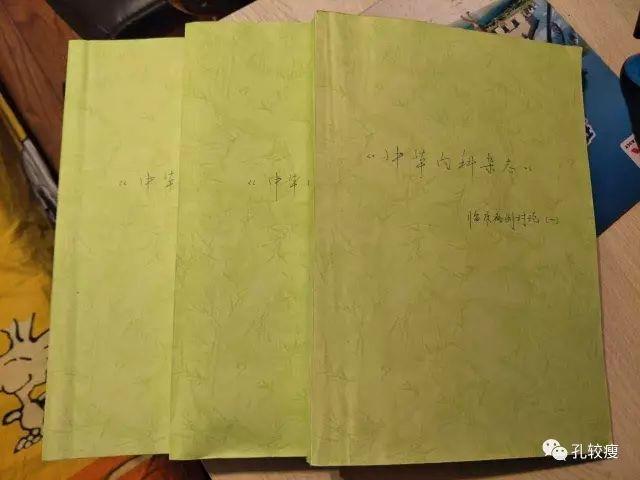 《中华
《中华
《中华内科杂志》
临床病例讨论(一)
孔较瘦